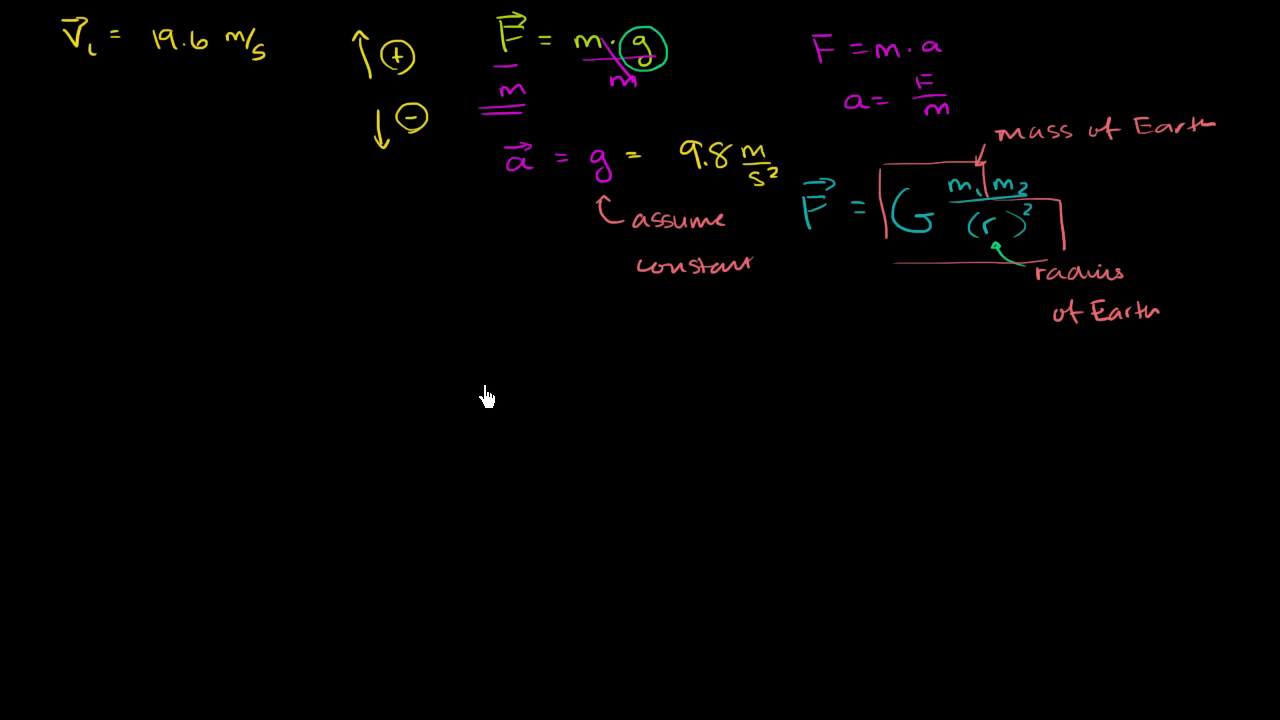 v⃗ᵢ = 19.6 m/s
↑ +
↓ -
F⃗ = m · g
m m
a⃗ = g = 9.8 m/s²
assume
constant
F = m · a
a = F/m
mass of Earth
F⃗ = G m₁ m₂ / (r)²
radius
of Earth